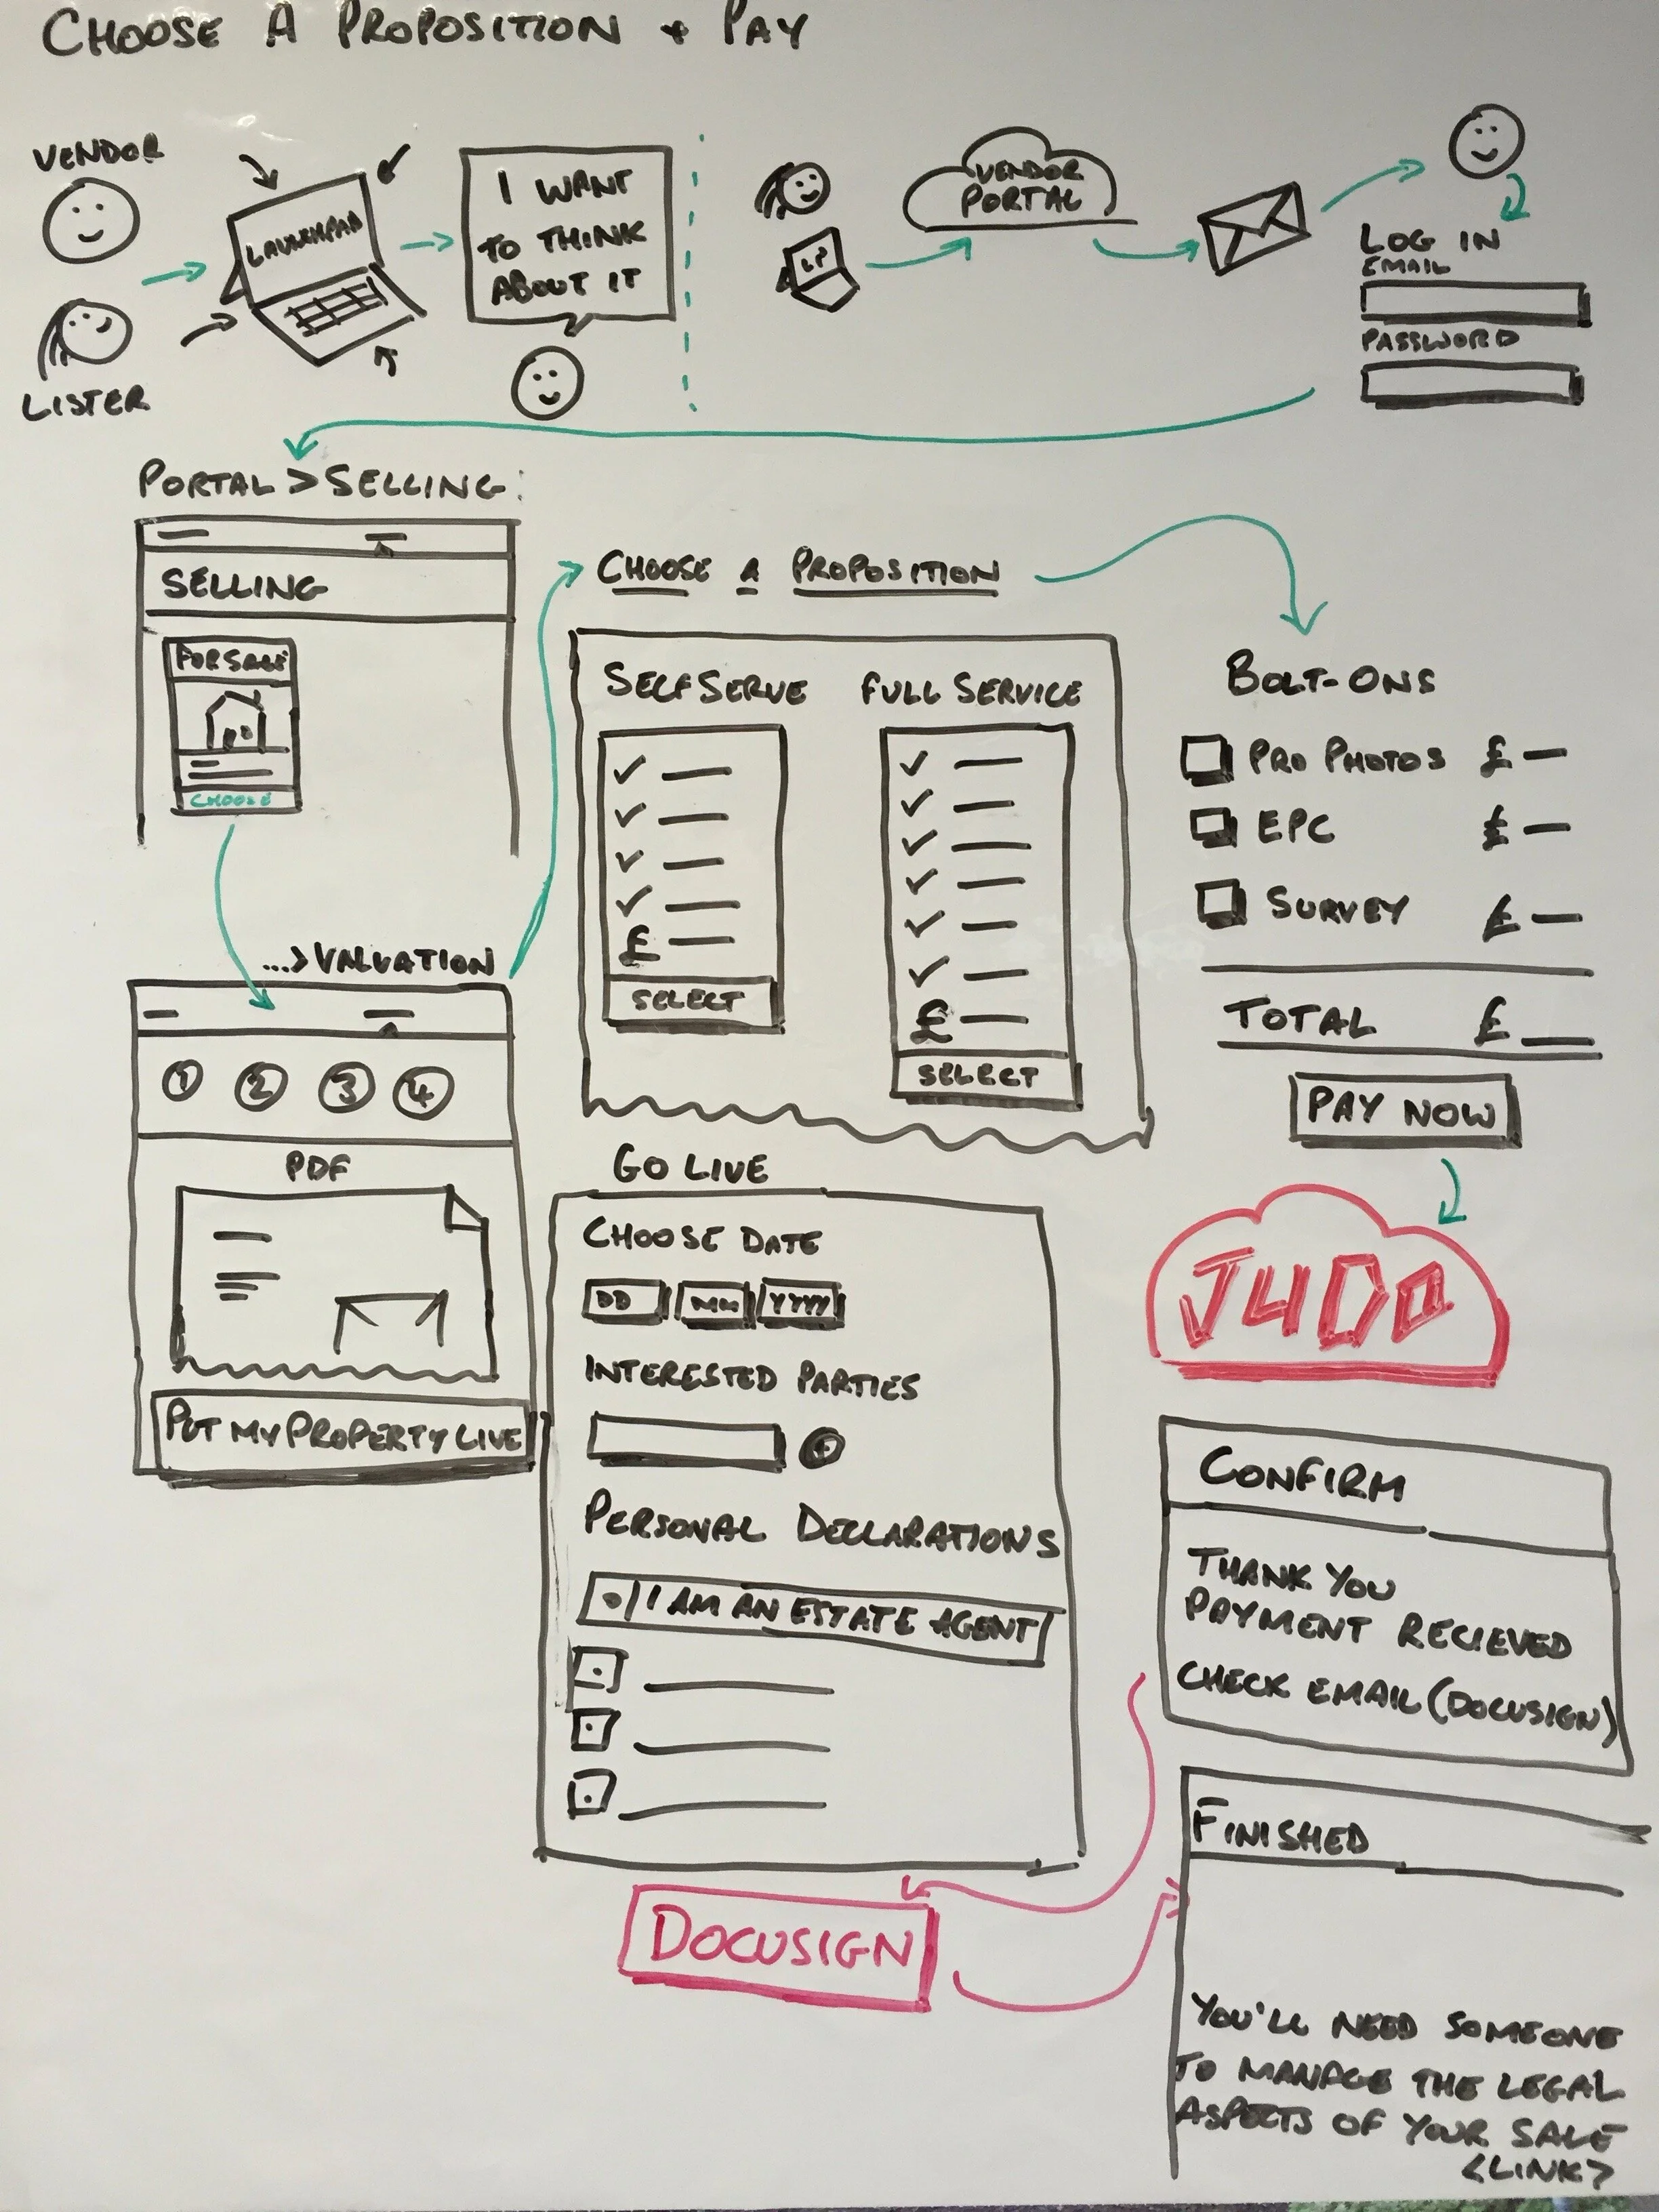 CHOOSE A PROPOSITION + PAY
VENDOR
LISTER
LAUNCHPAD
I WANT
TO THINK
ABOUT IT
LP
VENDOR
PORTAL
LOG IN
EMAIL
PASSWORD
PORTAL > SELLING:
SELLING
FOR SALE
CHOOSE
...> VALUATION
1 2 3 4
PDF
PUT MY PROPERTY LIVE
CHOOSE A PROPOSITION
SELF SERVE
£
SELECT
FULL SERVICE
£
SELECT
BOLT-ONS
PRO PHOTOS £
EPC £
SURVEY £
TOTAL £
PAY NOW
JUDO
GO LIVE
CHOOSE DATE
DD MM YYYY
INTERESTED PARTIES
+
PERSONAL DECLARATIONS
I AM AN ESTATE AGENT
CONFIRM
THANK YOU
PAYMENT RECIEVED
CHECK EMAIL (DOCUSIGN)
DOCUSIGN
FINISHED
YOU'LL NEED SOMEONE
TO MANAGE THE LEGAL
ASPECTS OF YOUR SALE
<LINK>